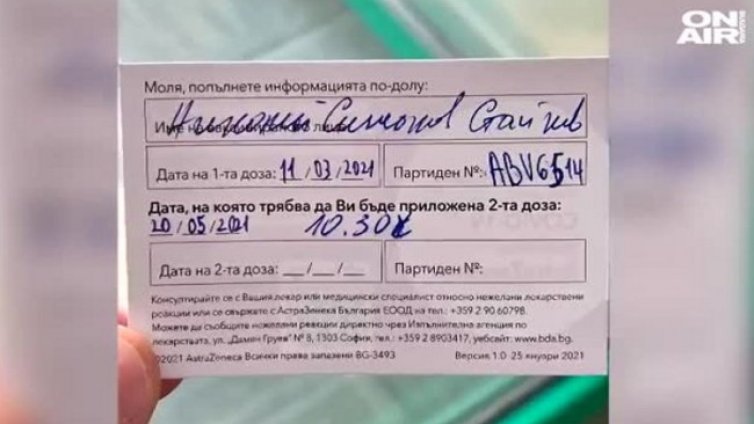 ON
AIR
BULGARIA
Моля, попълнете информацията по-долу:
Симеонов Стайков
Име на ваксинираното лице:
Дата на 1-та доза: 11/03/2021 Партиден №: ABV6514
Дата, на която трябва да Ви бъде приложена 2-та доза:
20/05/2021 10.30ч
Дата на 2-та доза: __/__/__ Партиден №:
Консултирайте се с Вашия лекар или медицински специалист относно нежелани лекарствени
реакции или се свържете с АстраЗенека България ЕООД на тел.: +359 2 90 60798.
Можете да съобщите нежелани реакции директно чрез Изпълнителна агенция по
лекарствата, ул. „Дамян Груев" № 8, 1303 София, тел.: +359 2 8903417, уебсайт: www.bda.bg.
©2021 AstraZeneca Всички права запазени BG-3493 Версия 1.0 - 25 януари 2021